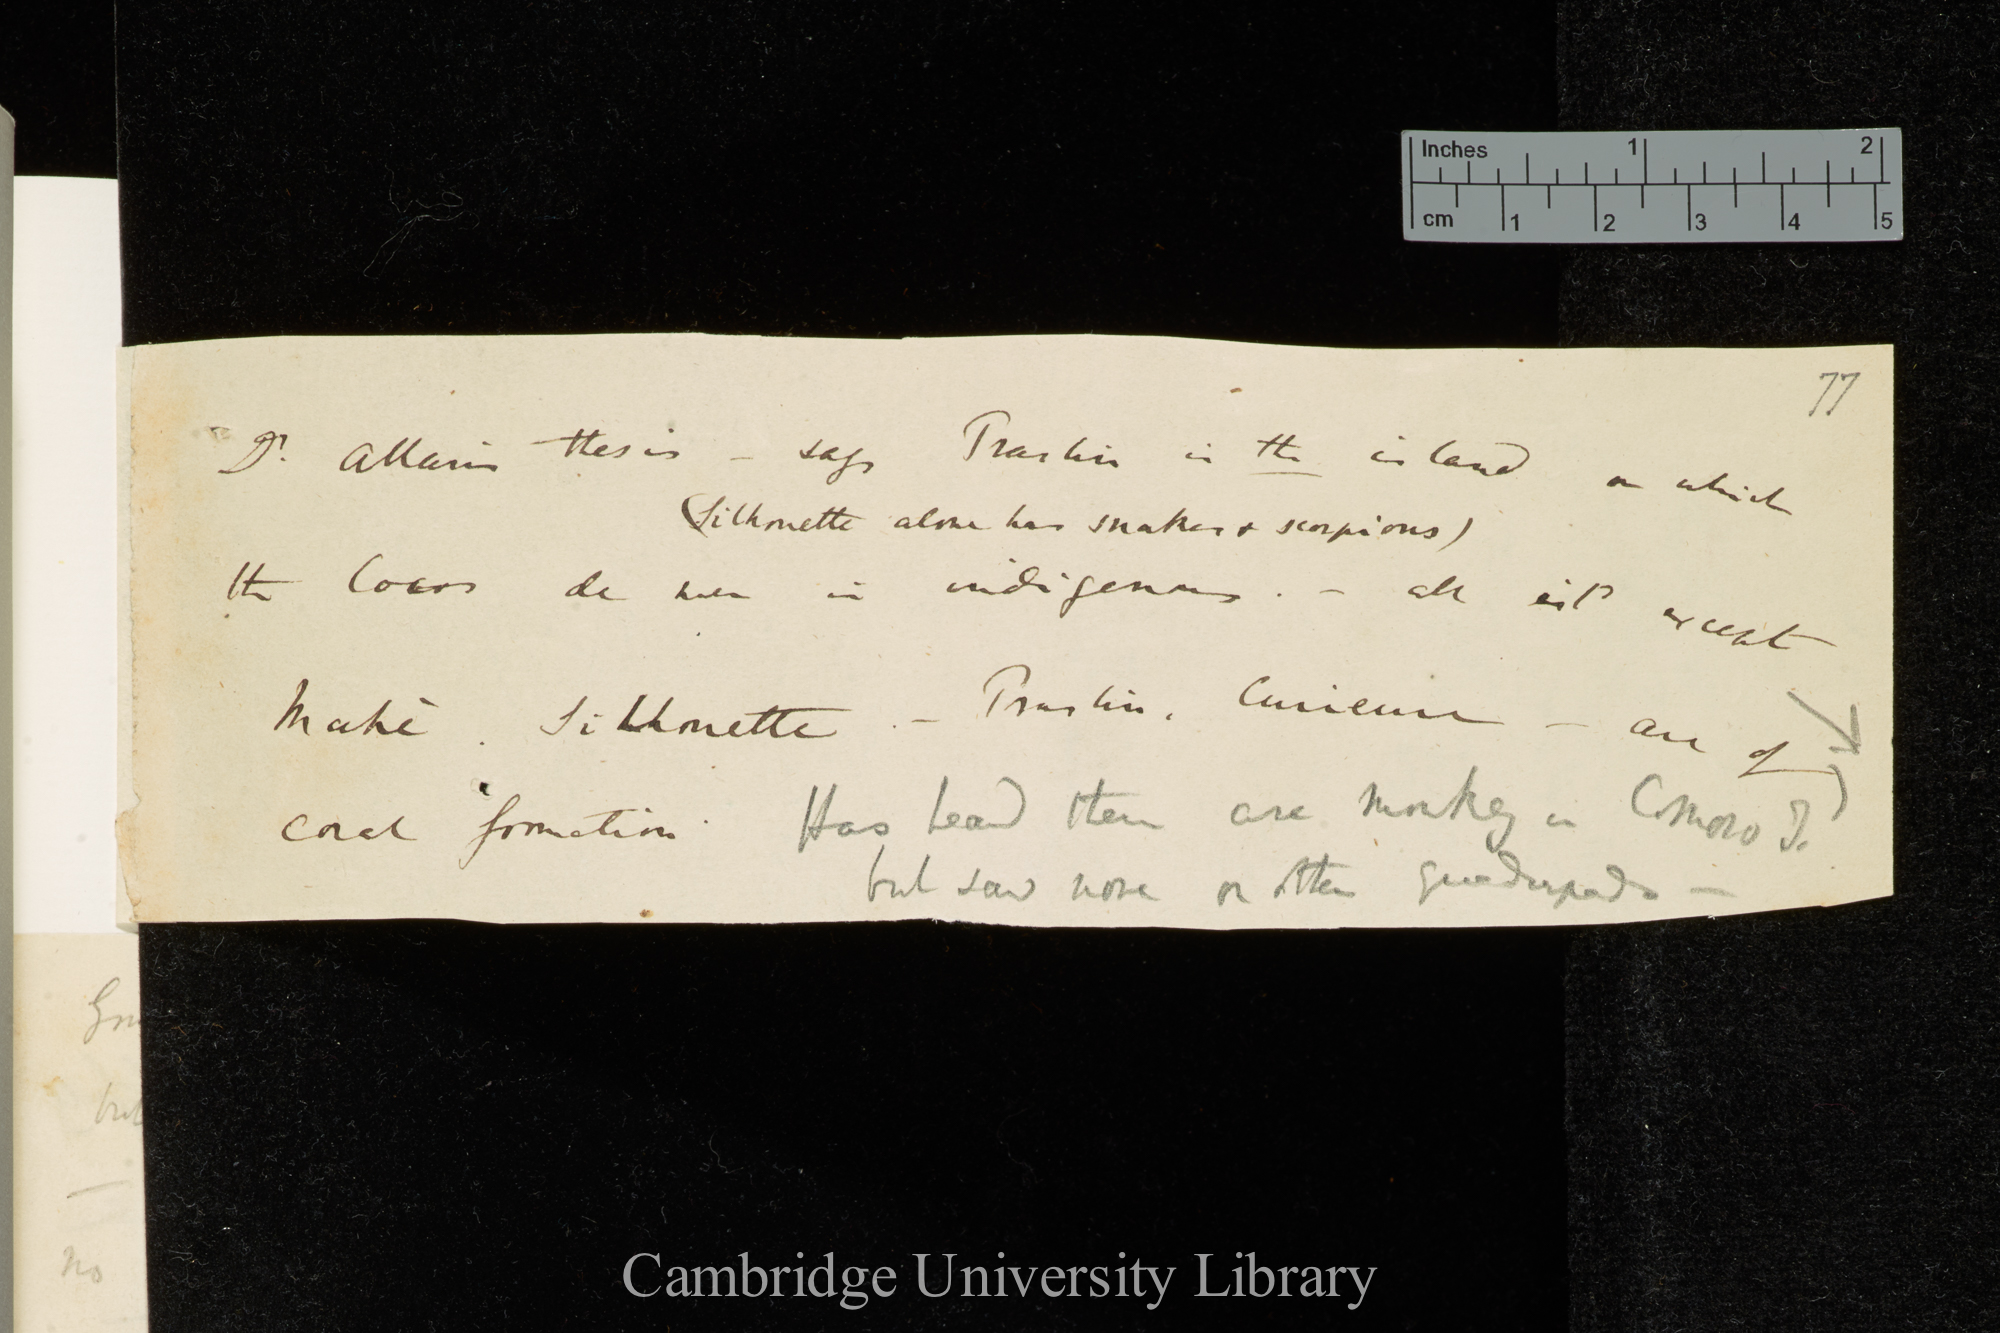 Inches 1 2
cm 1 2 3 4 5
77
Dr. Allan's thesis – says Praslin is the island on which
(Silhouette alone has snakes & scorpions)
the Cocos de mer is indigenous. – all isld except
Mahé, Silhouette – Praslin, Curieuse – are of
coral formation
Has heard there are monkey in Comoro I.)
but saw none or other quadrupeds –
but
no
Cambridge University Library